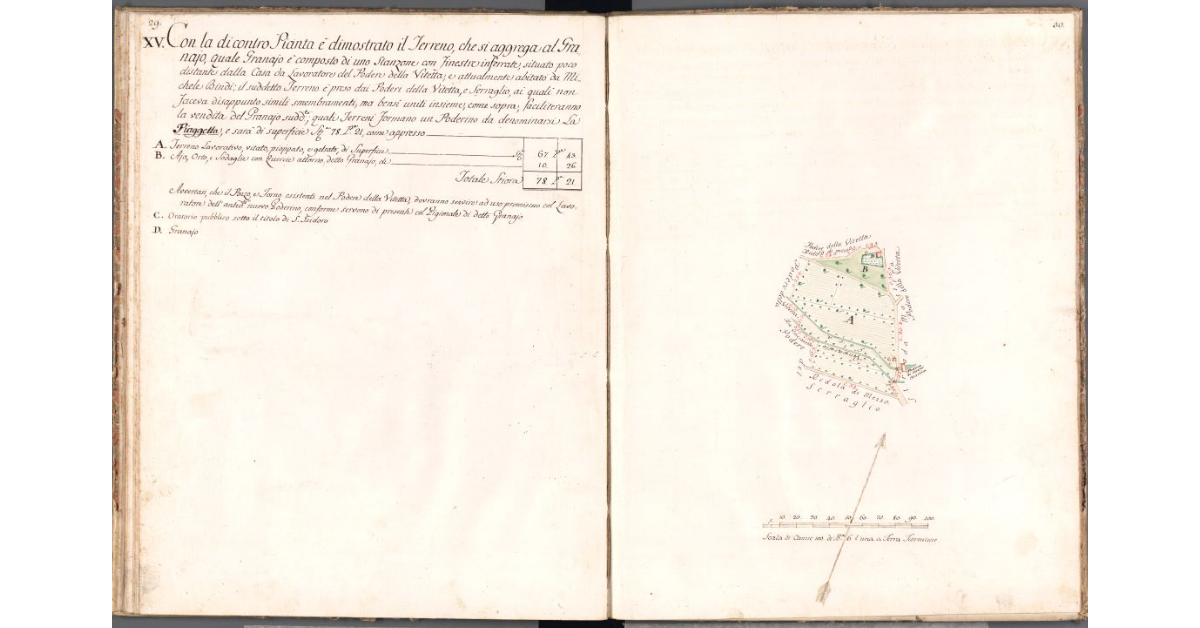 29.
XV. Con la dicontro Pianta è dimostrato il Terreno, che si aggrega al Gra
najo, quale Granajo è composto di uno Stanzone con finestre inferrate, situato poco
distante dalla Casa da Lavoratore del Podere della Vitetta, e attualmente abitato da Mi
chele Bindi; il suddetto Terreno è preso dai Poderi della Vitetta, e Serraglio, ai quali non
faceva disappunto simili smembramenti, ma bensì uniti insieme, come sopra, faciliteranno
la vendita del Granajo sudd.º, quali Terreni formano un Poderino da denominarsi La
Piaggetta, e sarà di superficie 78. P. 21, come appresso
A. Terreno Lavorativo, vitato, pioppato, e gelsato, di Superficie 67 P. 43
B. Ajo, Orto, e Sodaglia con Querce attorno, detto Granajo, di 10. 26
Totale Stiora 78 P. 21
Avvertasi, che il Pozzo, e Forno esistenti nel Podere della Vitetta, dovranno servire ad uso promiscuo col Lavo
ratore dell' nuovo Poderino, conforme servono di presente col Pigionale di detto Granajo
C. Oratorio pubblico sotto il titolo di S. Isidoro
D. Granajo
30.
Podere della Vitetta
B
A
Podere della Vitetta
Podere della Vitetta
Podere
Strada
Redola di Mezzo
Serraglio
10. 20. 30. 40. 50. 60. 70. 80. 90. 100.
Scala di Canne 100. di 6 l'una a Terra Fiorentine